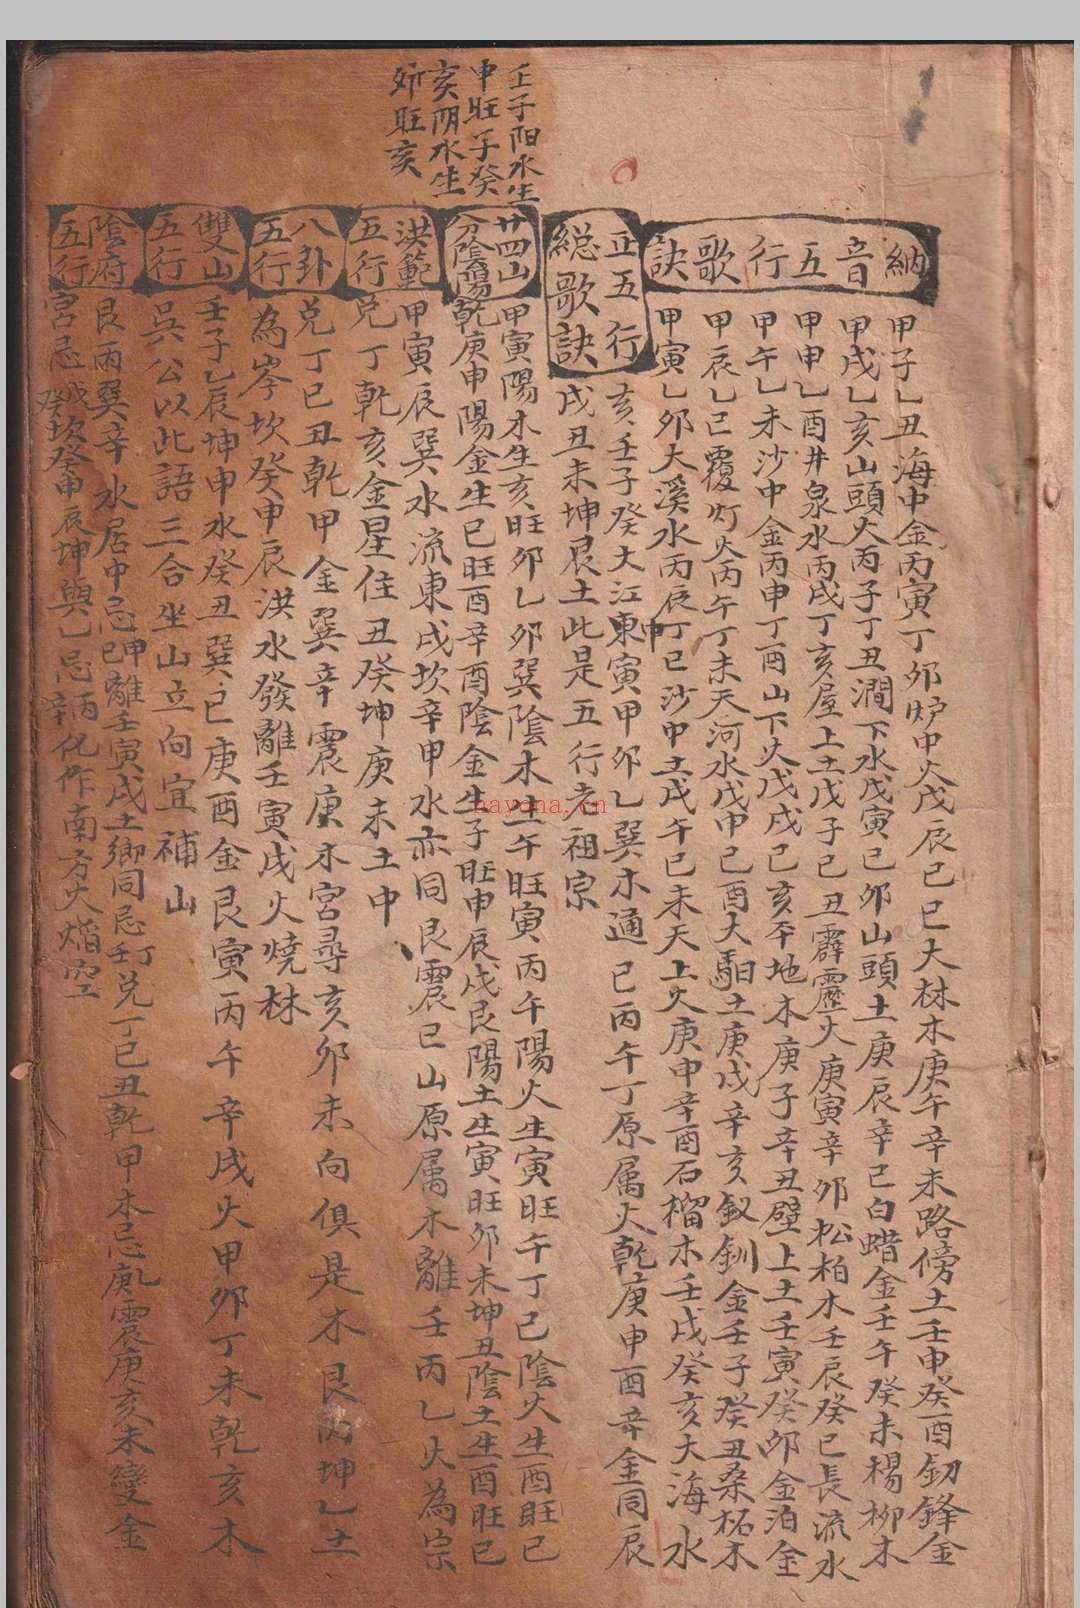 納音五行歌訣
甲子乙丑海中金丙寅丁卯炉中火戊辰己巳大林木庚午辛未路傍土壬申癸酉釰鋒金
甲戌乙亥山頭火丙子丁丑澗下水戊寅己卯山頭土庚辰辛巳白蜡金壬午癸未楊柳木
甲申乙酉井泉水丙戌丁亥屋上土戊子己丑霹靂火庚寅辛卯松柏木壬辰癸巳長流水
甲午乙未沙中金丙申丁酉山下火戊戌己亥平地木庚子辛丑壁上土壬寅癸卯金泊金
甲辰乙巳覆灯火丙午丁未天河水戊申己酉大馹土庚戌辛亥釵釧金壬子癸丑桑柘木
甲寅乙卯大溪水丙辰丁巳沙中土戊午己未天上火庚申辛酉石榴木壬戌癸亥大海水
正五行総歌訣
亥壬子癸大江東寅甲卯乙巽木通巳丙午丁原属火乾庚申酉辛金同辰
戌丑未坤艮土此是五行老祖宗
壬子阳水生
申旺子癸
亥阴水生
卯旺亥
廿四山分陰陽
甲寅陽木生亥旺卯乙卯巽陰木生午旺寅丙午陽火生寅旺午丁巳陰火生酉旺巳
乾庚申陽金生巳旺酉辛酉陰金生子旺申辰戌艮陽土生寅旺卯未坤丑陰土生酉旺巳
洪範五行
甲寅辰巽水流東戌坎辛甲水亦同艮震巳山原属木離壬丙乙火為宗
兑丁乾亥金星住丑癸坤庚未土中
八卦五行
兑丁巳丑乾甲金巽辛震庚木宮尋亥卯未向俱是木艮丙坤乙土
為岑坎癸申辰洪水發離壬寅戌火燒林
雙山五行
壬子乙辰坤申水癸丑巽巳庚酉金艮寅丙午辛戌火甲卯丁未乾亥木
呉公以此語三合坐山立向宜補山
陰府五行
艮丙巽辛水居中忌甲巳離壬寅戌土鄉同忌壬丁兑丁巳丑乾甲木忌庚震庚亥未變金
宮忌戊癸坎癸申辰坤與乙忌丙辛化作南方火焰空